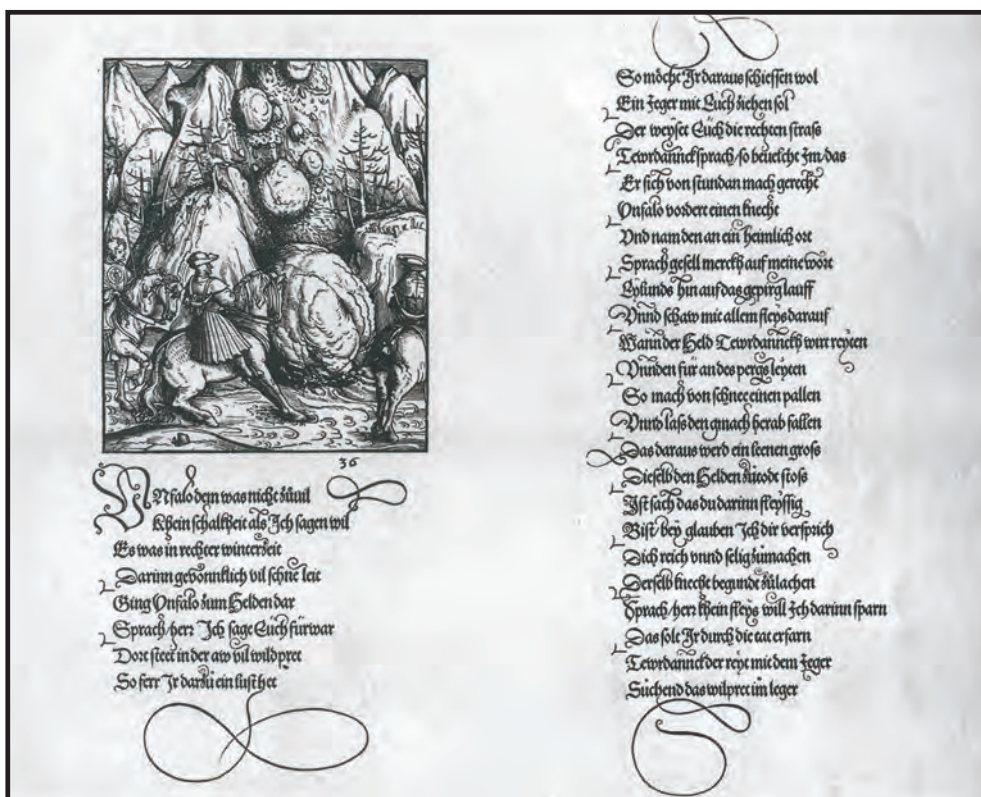 36
VNfalo dem was nicht züuil
Khein schalkheit als Ich sagen wil
Es was in rechter winterzeit
Darinn gewonnklich vil schne leit
Ging Vnfalo zum Helden dar
Sprach/herr Ich sage Euch fürwar
Dort steet in der aw vil wildpret
So ferr Ir darzü ein lust het
So möcht Ir daraus schiessen wol
Ein Jeger mit Euch ziehen sol
Der weyset Euch die rechten strass
Tewrdannck sprach/so beuelcht Im/das
Er sich von stundan mach gerecht
Vnfalo vordert einen knecht
Vnd nam den an ein heimlich ort
Sprach gesell merckh auf meine wort
Eylunds hin auf das gepirg lauff
Vnnd schaw mit allem fleys darauf
Wann der Held Tewrdannckh wirt reyten
Vnnden für an des pergs leyten
So mach von schnee einen pallen
Vnnd lass den gmach herab fallen
Das daraus werd ein leenen gross
Dieselb den Helden zütodt stoss
Ist sach das du darinn fleyssig
Bist/bey glauben Ich dir versprich
Dich reich vnnd selig zümachen
Derselb knecht begundt zülachen
Sprach/herr khein fleys will Ich darinn sparn
Das solt Ir durch die tat erfarn
Tewrdannck der reyt mit dem Jeger
Süchend das wilpret im leger